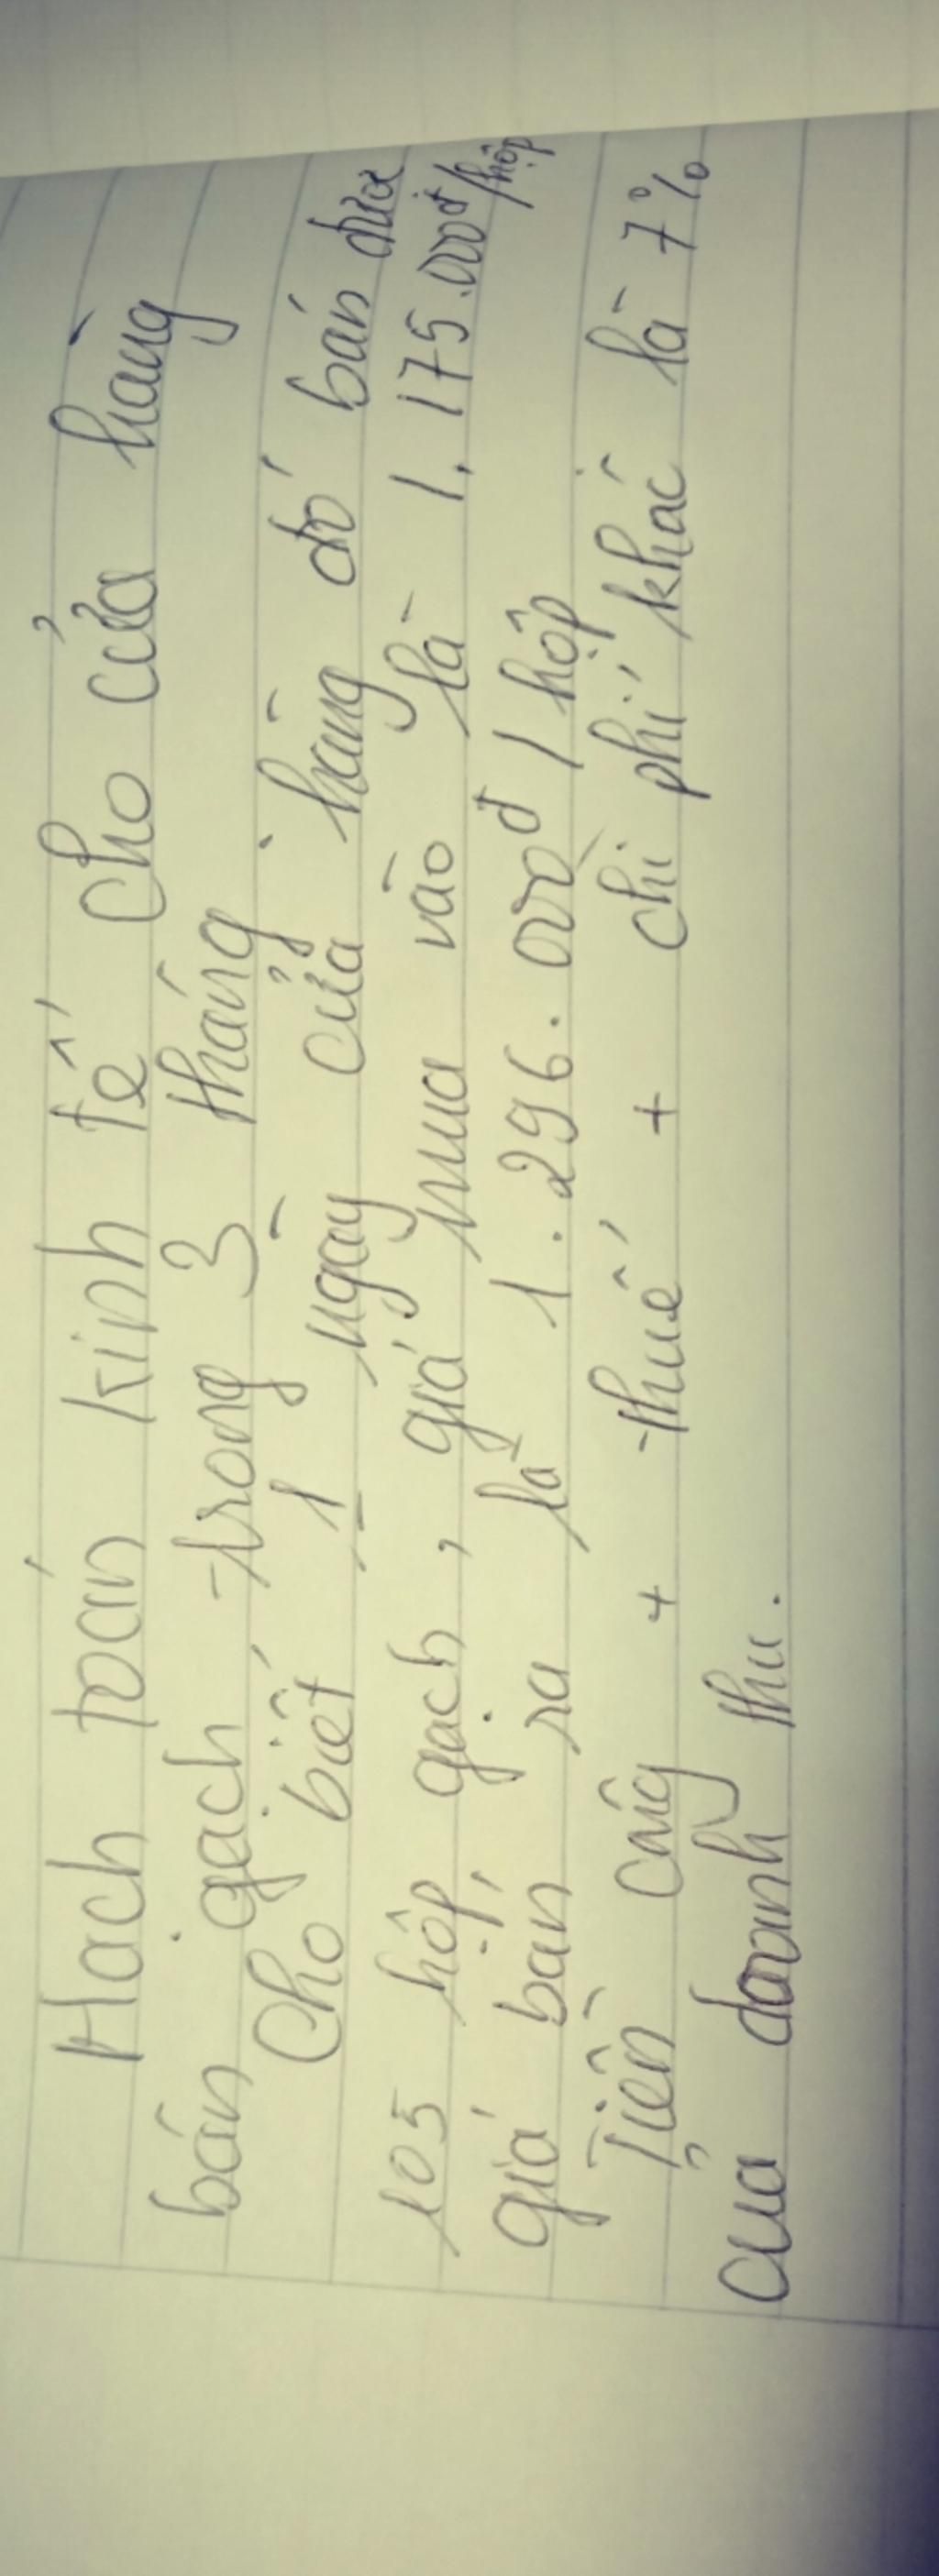 Hạch toán kinh tế cho cửa hàng
bán gạch trong 3 tháng
Cho biết 1 ngày của hàng đó bán được
105 hộp gạch, giá mua vào là 1.175.000đ/hộp
giá bán ra là 1.296.000đ/hộp
Tiền công + thuế + chi phí khác là 7%
của doanh thu.